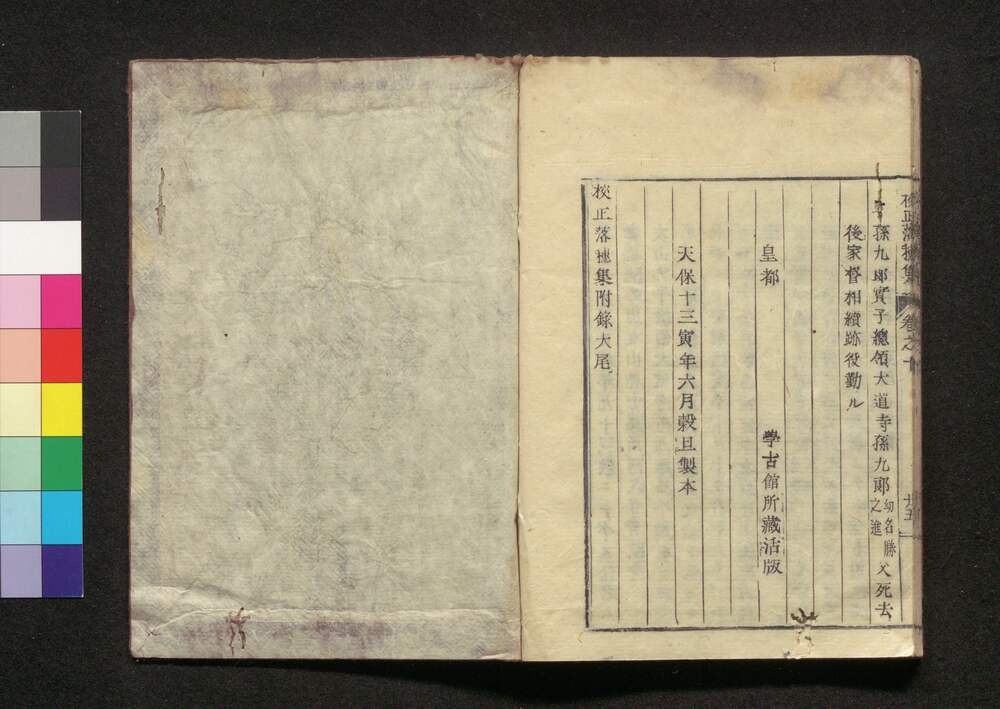 校正落穗集 卷之十 廿五
孫九郎實子總領大道寺孫九郎幼名勝之進父死去
後家督相續跡役勤ル
皇都 學古館所藏活版
天保十三寅年六月穀旦製本
校正落穗集附錄大尾